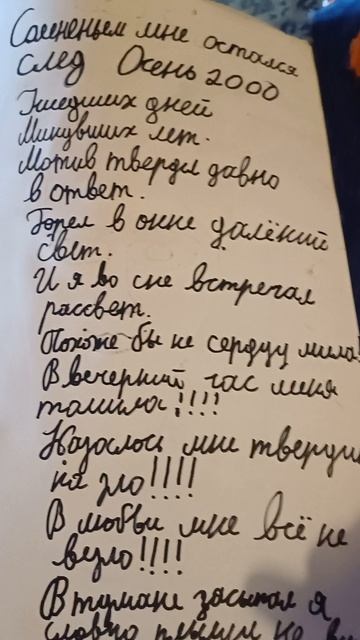 Сомненьем мне остался
след Осень 2000
Ушедших дней
Минувших лет.
Мотив твердил давно
в ответ.
Горел в окне далёкий
свет.
И я во сне встречал
рассвет.
Похоже бы не сердцу мила!
В вечерний час меня
томила!!!!
Казалось мне твердил
на зло!!!!
В любви мне всё не
везло!!!!
В тумане засыпал я
словно